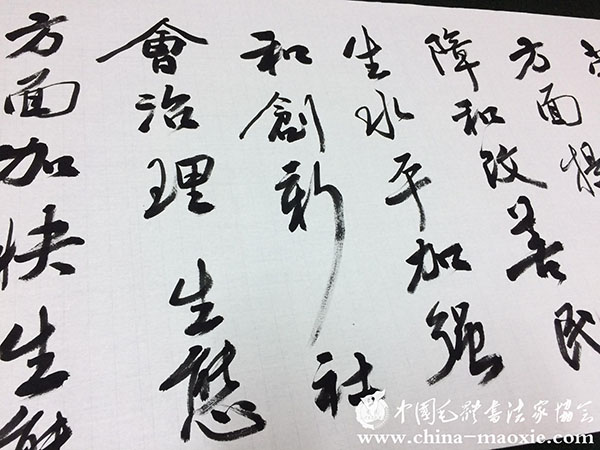 方面提
障和改善民
生水平加强
和創新社
會治理 生態
方面加快生態
中国毛体书法家协会
www.china-maoxie.com